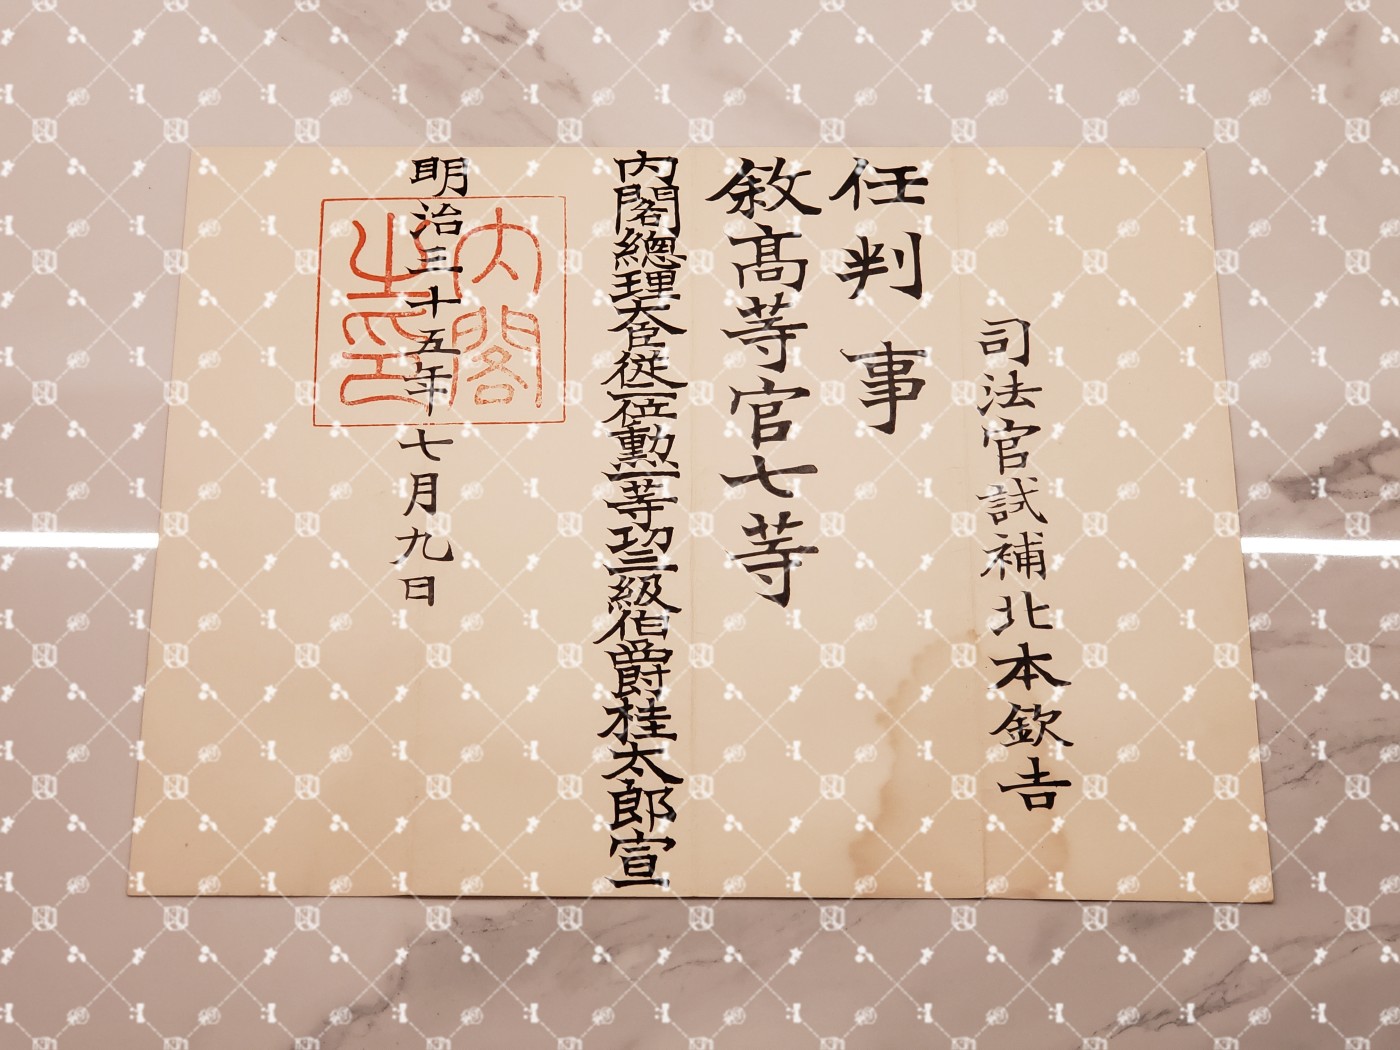 司法官試補北本欽吉
任判事
敘高等官七等
内閣總理大臣従一位勲一等功三級伯爵桂太郎宣
明治三十五年七月九日
内閣之印